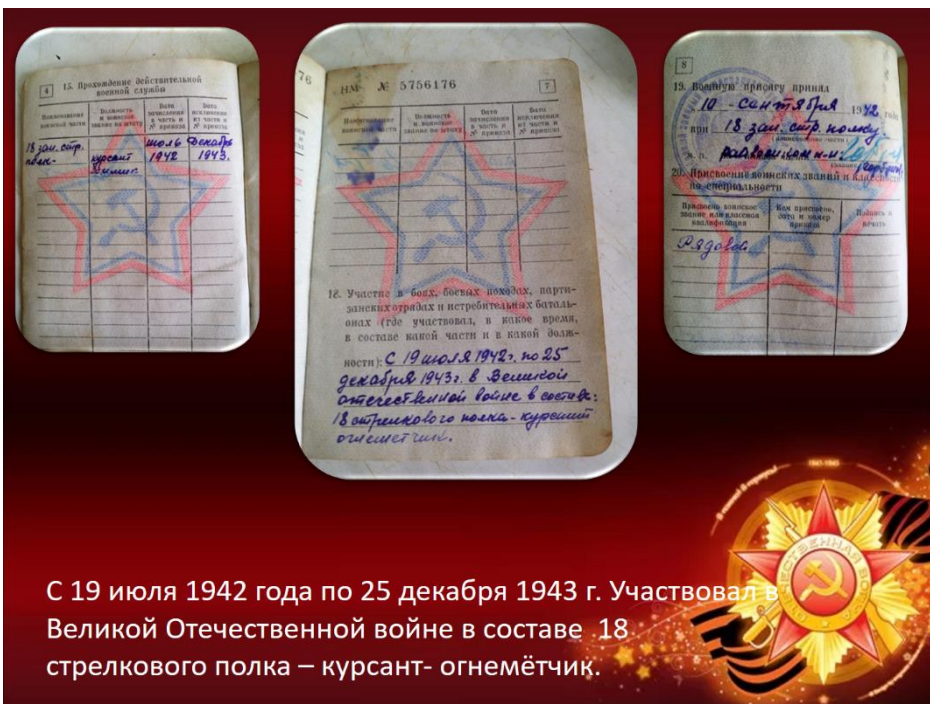 4
15. Прохождение действительной
военной службы
Наименование воинской части
Должность и воинское звание по штату
Дата зачисления в часть и № приказа
Дата исключения из части и № приказа
18 зап. стр. полк-
курсант
июль 1942
декабрь 1943.
НМ № 5756176
7
Наименование воинской части
Должность и воинское звание по штату
Дата зачисления в часть и № приказа
Дата исключения из части и № приказа
18. Участие в боях, боевых походах, парти-
занских отрядах и истребительных баталь-
онах (где участвовал, в какое время,
в составе какой части и в какой долж-
ности): С 19 июля 1942г. по 25
декабря 1943г. в Великой
отечественной войне в составе:
18 стрелкового полка - курсант
огнеметчик.
8
19. Военную присягу принял
10 - сентября 1942 года
при 18 зап. стр. полку
20. Присвоение воинских званий и классности
по специальности
Присвоено воинское звание или классная квалификация
Кем присвоено, дата и номер приказа
Подпись и печать
Рядовой
1941-1945
ОТЕЧЕСТВЕННАЯ ВОЙНА
С 19 июля 1942 года по 25 декабря 1943 г. Участвовал в
Великой Отечественной войне в составе 18
стрелкового полка – курсант- огнемётчик.